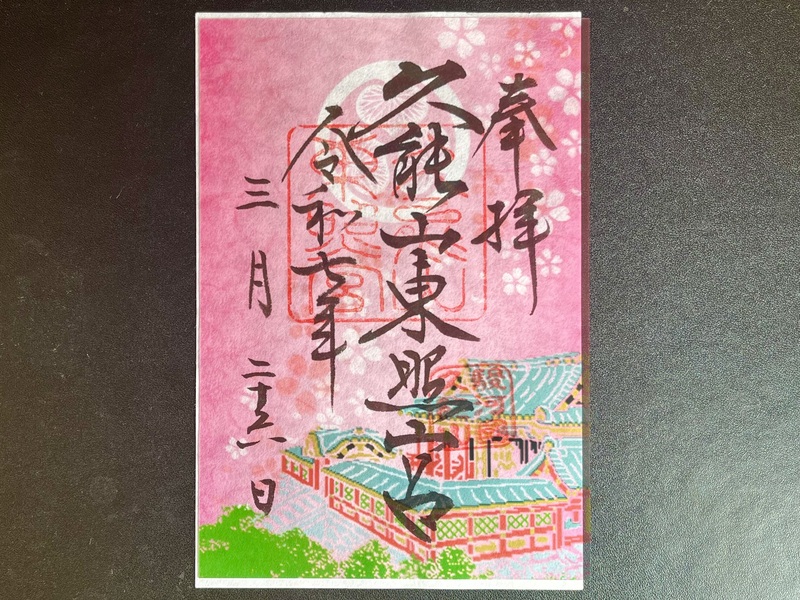 奉拝
久能山東照宮
令和七年
三月二十六日